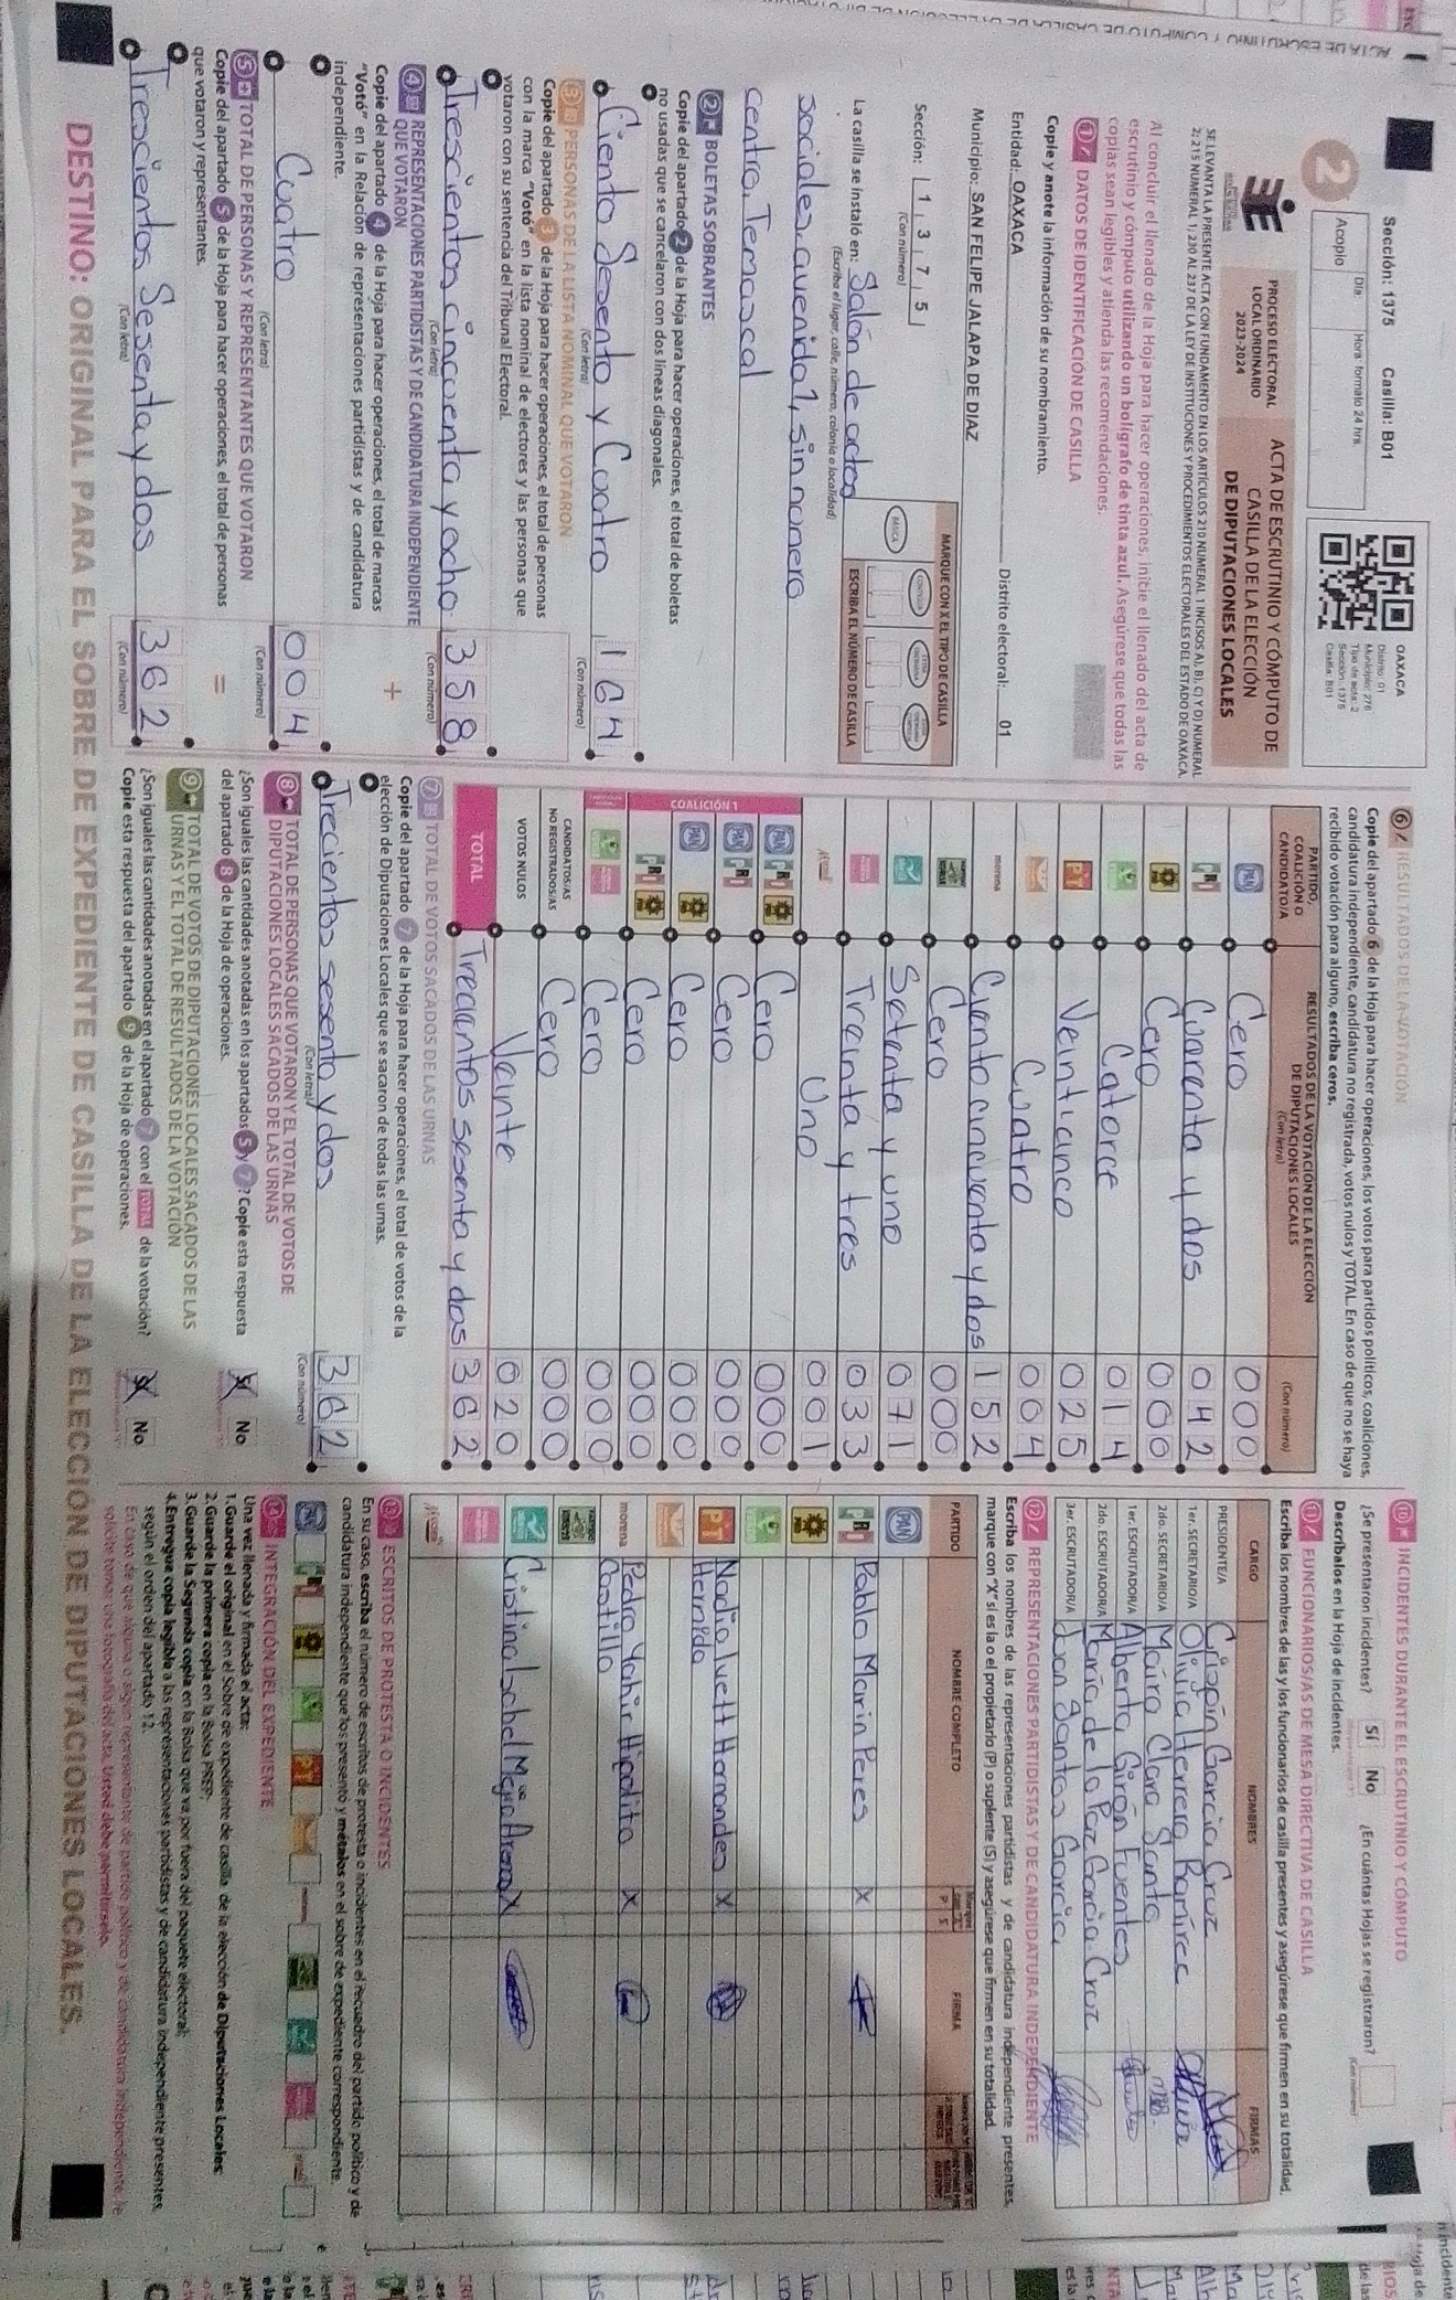 Sección: 1375 Casilla: B01
Día: Hora: formato 24 hrs.
Acopio
2
OAXACA
Distrito: 01
Municipio: 276
Tipo de acta: 2
Sección: 1375
Casilla: B01
PROCESO ELECTORAL
LOCAL ORDINARIO
2023-2024
ACTA DE ESCRUTINIO Y CÓMPUTO DE
CASILLA DE LA ELECCIÓN
DE DIPUTACIONES LOCALES
SE LEVANTA LA PRESENTE ACTA CON FUNDAMENTO EN LOS ARTÍCULOS 210 NUMERAL 1 INCISOS A), B), C) Y D) NUMERAL
2; 215 NUMERAL 1; 230 AL 237 DE LA LEY DE INSTITUCIONES Y PROCEDIMIENTOS ELECTORALES DEL ESTADO DE OAXACA.
Al concluir el llenado de la Hoja para hacer operaciones, inicie el llenado del acta de
escrutinio y cómputo utilizando un bolígrafo de tinta azul. Asegúrese que todas las
copias sean legibles y atienda las recomendaciones.
1 DATOS DE IDENTIFICACIÓN DE CASILLA
Copie y anote la información de su nombramiento.
Entidad: OAXACA Distrito electoral: 01
Municipio: SAN FELIPE JALAPA DE DIAZ
Sección: 1 3 7 5
(Con número)
MARQUE CON X EL TIPO DE CASILLA
BÁSICA
ESCRIBA EL NÚMERO DE CASILLA
La casilla se instaló en: Salón de actos
(Escriba el lugar, calle, número, colonia o localidad)
sociales, avenida 1, sin nomero
centro, Temascal
2 BOLETAS SOBRANTES
Copie del apartado 2 de la Hoja para hacer operaciones, el total de boletas
no usadas que se cancelaron con dos líneas diagonales.
Ciento Sesento y Cuatro 164
(Con letra) (Con número)
3 PERSONAS DE LA LISTA NOMINAL QUE VOTARON
Copie del apartado 3 de la Hoja para hacer operaciones, el total de personas
con la marca "Votó" en la lista nominal de electores y las personas que
votaron con su sentencia del Tribunal Electoral.
Trescientos cincuenta y ocho 358
(Con letra) (Con número)
4 REPRESENTACIONES PARTIDISTAS Y DE CANDIDATURA INDEPENDIENTE
QUE VOTARON
Copie del apartado 4 de la Hoja para hacer operaciones, el total de marcas
"Votó" en la Relación de representaciones partidistas y de candidatura
independiente.
+
Cuatro 004
(Con letra) (Con número)
5 TOTAL DE PERSONAS Y REPRESENTANTES QUE VOTARON
Copie del apartado 5 de la Hoja para hacer operaciones, el total de personas
que votaron y representantes.
=
Trescientos Sesenta y dos 362
(Con letra) (Con número)
6 RESULTADOS DE LA VOTACIÓN
Copie del apartado 6 de la Hoja para hacer operaciones, los votos para partidos políticos, coaliciones,
candidatura independiente, candidatura no registrada, votos nulos y TOTAL. En caso de que no se haya
recibido votación para alguno, escriba ceros.
PARTIDO,
COALICIÓN O
CANDIDATO/A
RESULTADOS DE LA VOTACIÓN DE LA ELECCIÓN
DE DIPUTACIONES LOCALES
(Con letra) (Con número)
PAN Cero 000
PRI Cuarenta y dos 042
PRD Cero 000
Catorce 014
PT Veinticinco 025
Cuatro 004
morena Ciento cincuenta y dos 152
Cero 000
Setenta y uno 071
Treinta y tres 033
Uno 001
COALICIÓN 1
PAN PRI PRD Cero 000
PAN PRI Cero 000
PAN PRD Cero 000
PRI PRD Cero 000
Cero 000
CANDIDATOS/AS
NO REGISTRADOS/AS Cero 000
VOTOS NULOS Veinte 020
TOTAL Trecientos sesenta y dos 362
7 TOTAL DE VOTOS SACADOS DE LAS URNAS
Copie del apartado 7 de la Hoja para hacer operaciones, el total de votos de la
elección de Diputaciones Locales que se sacaron de todas las urnas.
Trecientos sesenta y dos 362
(Con letra) (Con número)
8 TOTAL DE PERSONAS QUE VOTARON Y EL TOTAL DE VOTOS DE
DIPUTACIONES LOCALES SACADOS DE LAS URNAS
¿Son iguales las cantidades anotadas en los apartados 5 y 7? Copie esta respuesta
del apartado 8 de la Hoja de operaciones.
Sí No
9 TOTAL DE VOTOS DE DIPUTACIONES LOCALES SACADOS DE LAS
URNAS Y EL TOTAL DE RESULTADOS DE LA VOTACIÓN
¿Son iguales las cantidades anotadas en el apartado 7 con el TOTAL de la votación?
Copie esta respuesta del apartado 9 de la Hoja de operaciones.
Sí No
10 INCIDENTES DURANTE EL ESCRUTINIO Y CÓMPUTO
¿Se presentaron incidentes? Sí No ¿En cuántas Hojas se registraron?
(Con número)
Descríbalos en la Hoja de incidentes.
11 FUNCIONARIOS/AS DE MESA DIRECTIVA DE CASILLA
Escriba los nombres de las y los funcionarios de casilla presentes y asegúrese que firmen en su totalidad.
CARGO NOMBRES FIRMAS
PRESIDENTE/A Crispín Garcia Cruz
1er. SECRETARIO/A Olivia Herrera Ramírez
2do. SECRETARIO/A Maira Clara Santa
1er. ESCRUTADOR/A Alberto Girón Fuentes
2do. ESCRUTADOR/A María de la Paz Garcia Cruz
3er. ESCRUTADOR/A Juan Santos Garcia
12 REPRESENTACIONES PARTIDISTAS Y DE CANDIDATURA INDEPENDIENTE
Escriba los nombres de las representaciones partidistas y de candidatura independiente presentes,
marque con "X" si es la o el propietario (P) o suplente (S) y asegúrese que firmen en su totalidad.
PARTIDO NOMBRE COMPLETO P S FIRMA
PAN
PRI Pablo Marin Peres X
PRD
PT Nadia Ivett Hernandez X
Hermida
morena Pedro Yahir Hipolito X
Castillo
Cristina Isabel Mejia X
13 ESCRITOS DE PROTESTA O INCIDENTES
En su caso, escriba el número de escritos de protesta o incidentes en el recuadro del partido político y de
candidatura independiente que los presentó y métalos en el sobre de expediente correspondiente.
PAN PRI PRD PT
14 INTEGRACIÓN DEL EXPEDIENTE
Una vez llenada y firmada el acta:
1. Guarde el original en el Sobre de expediente de casilla de la elección de Diputaciones Locales;
2. Guarde la primera copia en la Bolsa PREP;
3. Guarde la Segunda copia en la Bolsa que va por fuera del paquete electoral;
4. Entregue copia legible a las representaciones partidistas y de candidatura independiente presentes,
según el orden del apartado 12.
En caso de que alguna o algún representante de partido político y de candidatura independiente, le
solicite tomar una fotografía del acta. Usted debe permitírselo.
DESTINO: ORIGINAL PARA EL SOBRE DE EXPEDIENTE DE CASILLA DE LA ELECCIÓN DE DIPUTACIONES LOCALES.